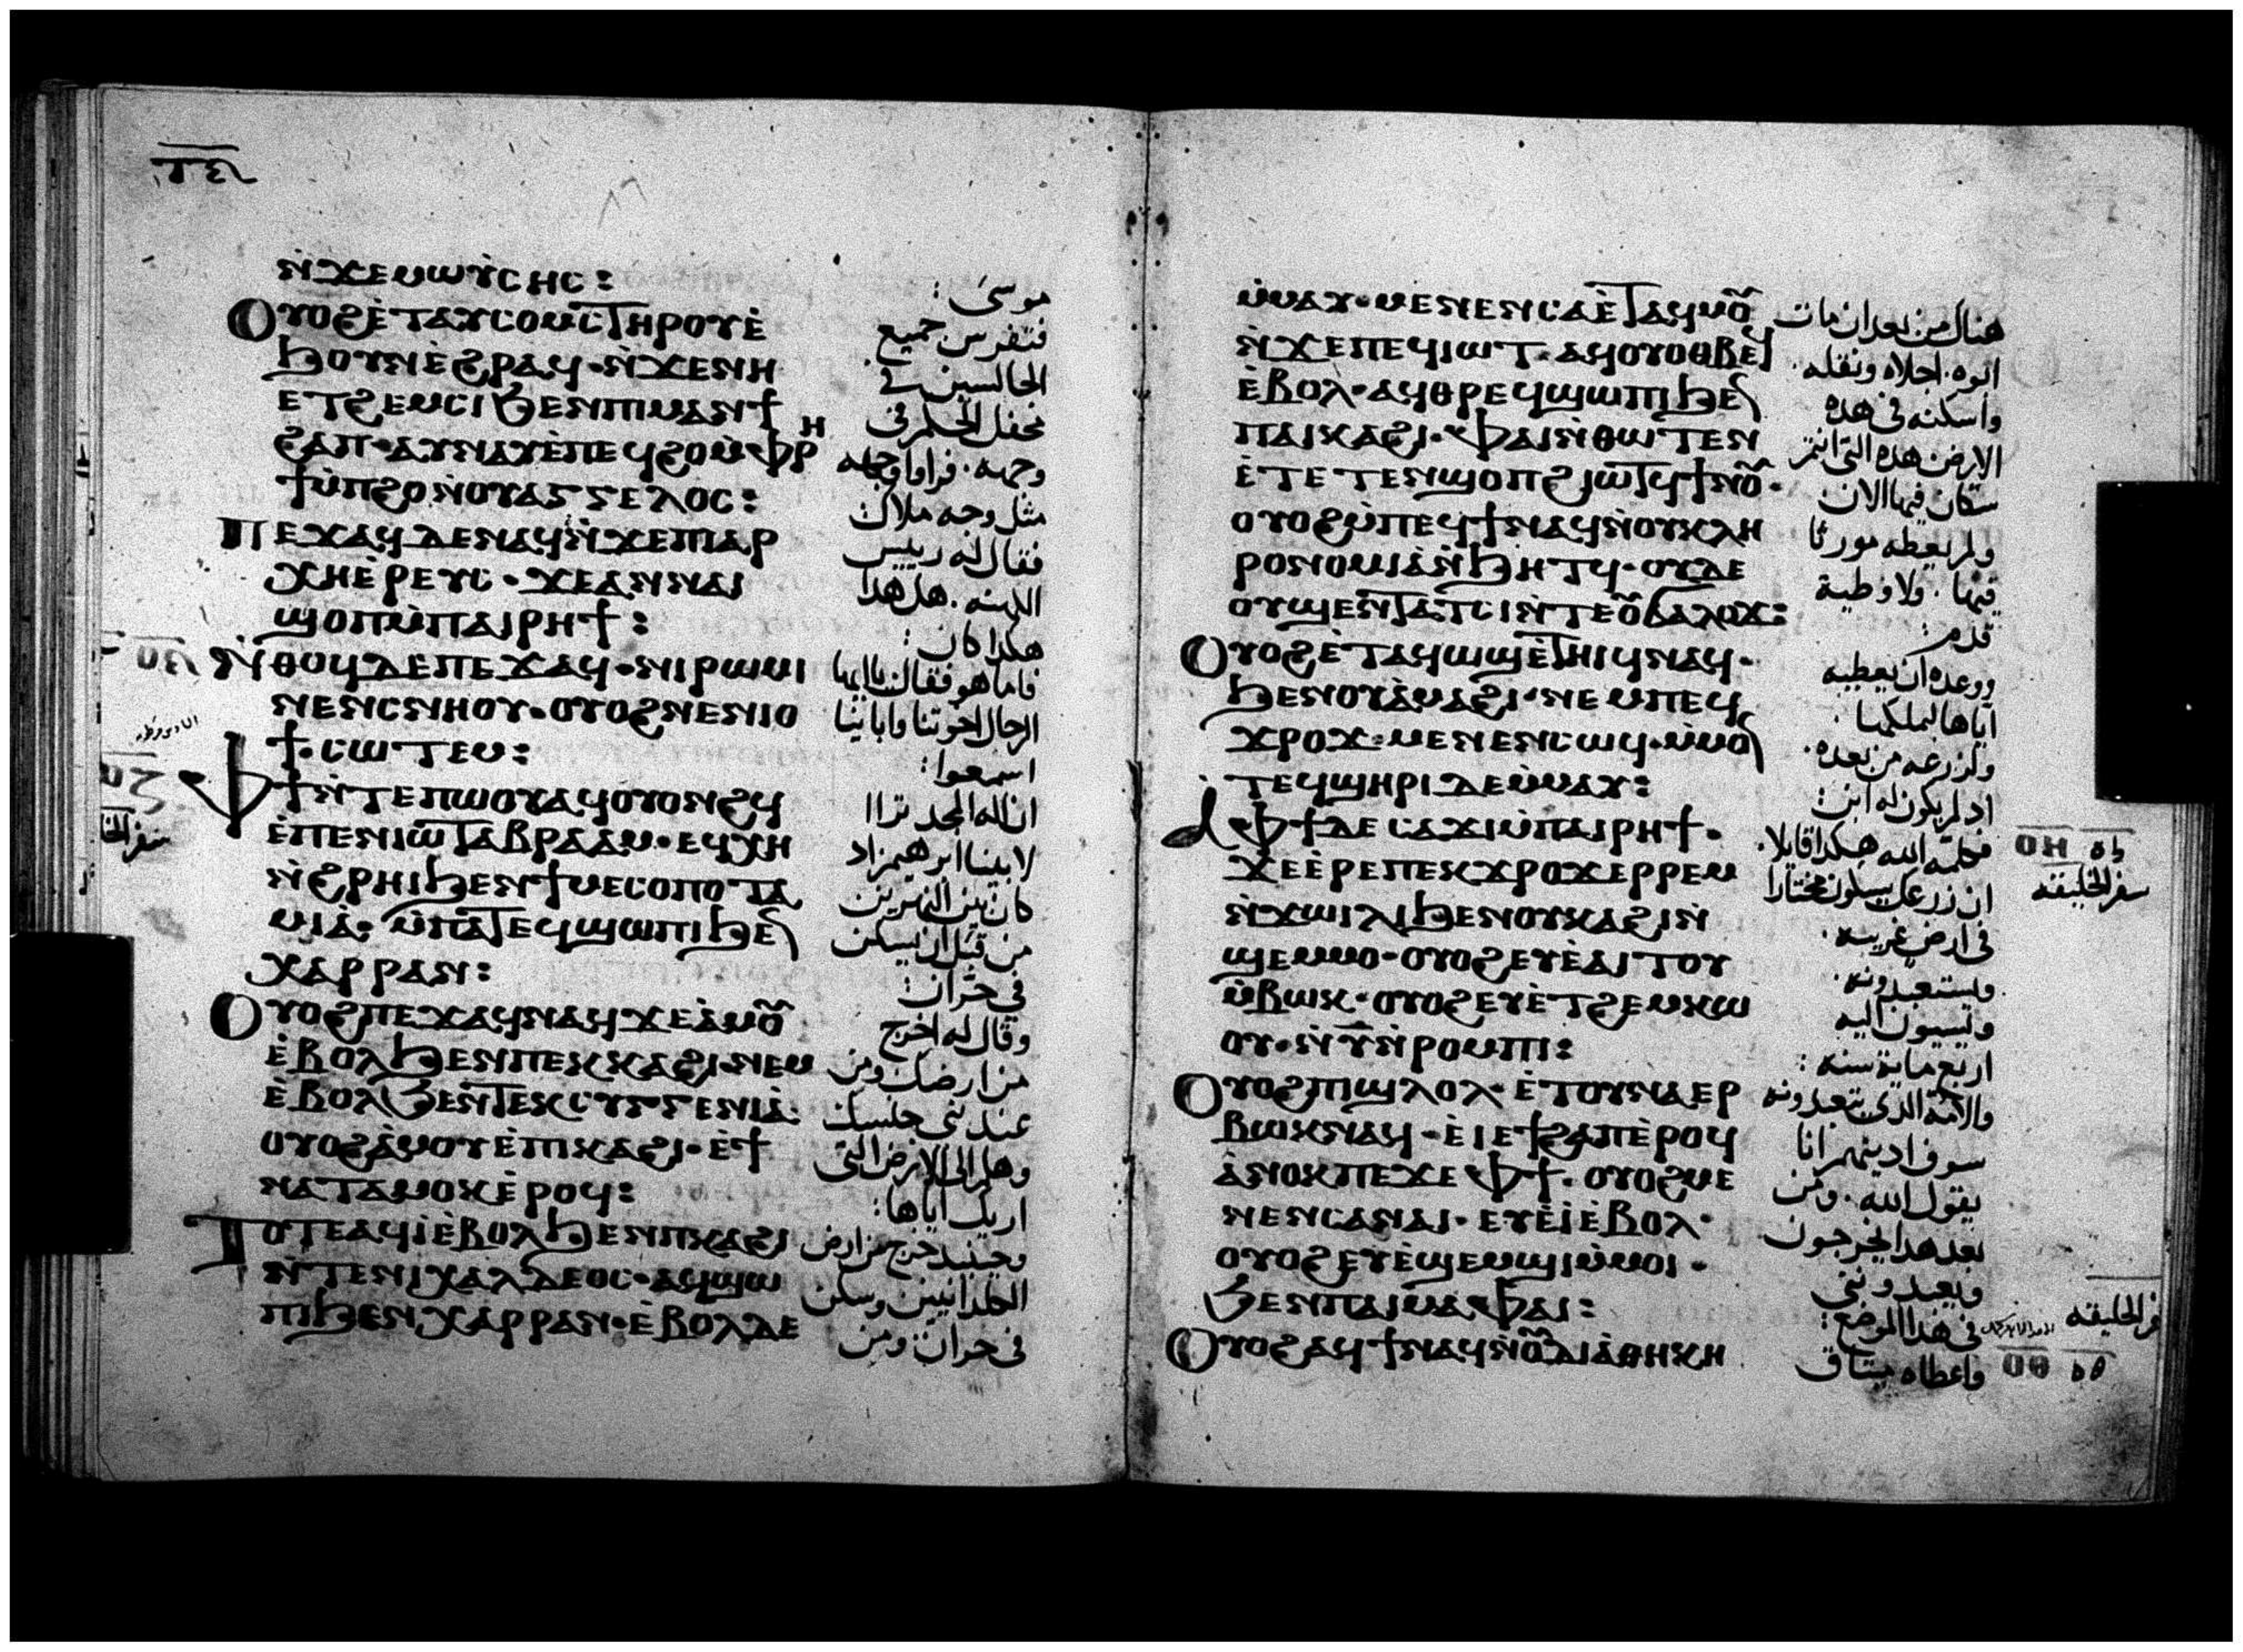 ⲛ̀ϫⲉⲙⲱⲩ̀ⲥⲏⲥ:
ⲟⲩⲟϩⲉ̀ⲧⲁⲩⲥⲟⲙⲥ ⲧⲏⲣⲟⲩⲉ̀
ϧⲟⲩⲛⲉ̀ϩⲣⲁϥ·ⲛ̀ϫⲉⲛⲏ
ⲉⲧϩⲉⲙⲥⲓϧⲉⲛⲡⲓⲙⲁⲛϯ
ϩⲁⲡ·ⲁⲩⲛⲁⲩⲉ̀ⲡⲉϥϩⲟⲙ̀ⲫⲣⲏ
ϯⲙ̀ⲡϩⲟⲛ̀ⲟⲩⲁⲅⲅⲉⲗⲟⲥ:
ⲡⲉϫⲁϥⲇⲉⲛⲁϥⲛ̀ϫⲉⲡⲓⲁⲣ
ⲭⲏⲉ̀ⲣⲉⲩⲥ·ϫⲉⲁⲛⲛⲁⲓ
ϣⲟⲡⲙ̀ⲡⲁⲓⲣⲏϯ:
ⲛ̀ⲑⲟϥⲇⲉⲡⲉϫⲁϥ·ⲛⲓⲣⲱⲙⲓ
ⲛⲉⲛⲥⲛⲏⲟⲩ·ⲟⲩⲟϩⲛⲉⲛⲓⲟ
ϯ·ⲥⲱⲧⲉⲙ:
ⲫϯⲛ̀ⲧⲉⲡⲱⲟⲩⲁϥⲟⲩⲟⲛϩϥ
ⲉ̀ⲡⲉⲛⲓⲱⲧⲁⲃⲣⲁⲁⲙ·ⲉϥⲭⲏ
ⲛ̀ϩⲣⲏⲓϧⲉⲛϯⲙⲉⲥⲟⲡⲟⲧⲁ
ⲙⲓⲁ̀·ⲙ̀ⲡⲁⲧⲉϥϣⲱⲡⲓϧⲉⲛ
ⲭⲁⲣⲣⲁⲛ:
ⲟⲩⲟϩⲡⲉϫⲁϥⲛⲁϥϫⲉⲁ̀ⲙⲟⲩ
ⲉ̀ⲃⲟⲗϧⲉⲛⲡⲉⲕⲕⲁϩⲓ·ⲛⲉⲙ
ⲉ̀ⲃⲟⲗϧⲉⲛⲧⲉⲕⲥⲩⲅⲅⲉⲛⲓⲁ̀·
ⲟⲩⲟϩⲁ̀ⲙⲟⲩⲉ̀ⲡⲓⲕⲁϩⲓ·ⲉ̀ϯ
ⲛⲁⲧⲁⲙⲟⲕⲉ̀ⲣⲟϥ:
ⲧⲟⲧⲉⲁϥⲓ̀ⲉ̀ⲃⲟⲗϧⲉⲛⲡⲕⲁϩⲓ
ⲛ̀ⲧⲉⲛⲓⲭⲁⲗⲇⲉⲟⲥ·ⲁϥϣⲱ
ⲡⲓϧⲉⲛⲭⲁⲣⲣⲁⲛ·ⲉ̀ⲃⲟⲗⲇⲉ
موسى:
فتفرس جميع
الجالسين في
محفل الحكم في
وجهه. فراوا وجهه
مثل وجه ملاك
فقال له رييس
الكهنه. هل هذا
هكذا كان:
فاما هو فقال يا ايها
الرجال اخوتنا واباينا
اسمعوا:
ان اله المجد تراا
لابينا ابرهيم اذ
كان بين النهرين
من قبل ان يسكن
في حران:
وقال له اخرج
من ارضك ومن
عند جنسك
وهلم الى الارض التي
اريك اياها:
وحينيذ خرج من ارض
الكلدانيين وسكن
في حران ومن
ⲙ̀ⲙⲁⲩ·ⲙⲉⲛⲉⲛⲥⲁⲉ̀ⲧⲁϥⲙⲟⲩ
ⲛ̀ϫⲉⲡⲉϥⲓⲱⲧ·ⲁϥⲟⲩⲟⲑⲃⲉϥ
ⲉ̀ⲃⲟⲗ·ⲁϥⲑⲣⲉϥϣⲱⲡⲓϧⲉⲛ
ⲡⲁⲓⲕⲁϩⲓ·ⲫⲁⲓⲛ̀ⲑⲱⲧⲉⲛ
ⲉ̀ⲧⲉⲧⲉⲛϣⲟⲡϩⲓⲱⲧϥϯⲛⲟⲩ·
ⲟⲩⲟϩⲙ̀ⲡⲉϥϯⲛⲁϥⲛ̀ⲟⲩⲕⲗⲏ
ⲣⲟⲛⲟⲙⲓⲁ̀ⲛ̀ϧⲏⲧϥ·ⲟⲩⲇⲉ
ⲟⲩϣⲉⲛⲧⲁⲧⲥⲓⲛ̀ⲧⲉⲟⲩϭⲁⲗⲟϫ:
ⲟⲩⲟϩⲉ̀ⲧⲁϥⲱϣⲉ̀ⲧⲏⲓϥⲛⲁϥ·
ϧⲉⲛⲟⲩⲁ̀ⲙⲁϩⲓ·ⲛⲉⲙⲡⲉϥ
ϫⲣⲟϫ·ⲙⲉⲛⲉⲛⲥⲱϥ·ⲙ̀ⲙⲟⲛ
ⲧⲉϥϣⲏⲣⲓⲇⲉⲙ̀ⲙⲁⲩ:
ⲁⲫϯⲇⲉⲥⲁϫⲓⲙ̀ⲡⲁⲓⲣⲏϯ·
ϫⲉⲉ̀ⲣⲉⲡⲉⲕϫⲣⲟϫⲉⲣⲣⲉⲙ
ⲛ̀ϫⲱⲓⲗⲓϧⲉⲛⲟⲩⲕⲁϩⲓⲛ̀
ϣⲉⲙⲙⲟ·ⲟⲩⲟϩⲉⲩⲉ̀ⲁⲓⲧⲟⲩ
ⲙ̀ⲃⲱⲕ·ⲟⲩⲟϩⲉⲩⲉ̀ⲧϩⲉⲙⲕⲱ
ⲟⲩ·ⲛ̀ⲩ̅ⲛ̀ⲣⲟⲙⲡⲓ:
ⲟⲩⲟϩⲡⲓϣⲗⲟⲗ·ⲉ̀ⲧⲟⲩⲛⲁⲉⲣ
ⲃⲱⲕⲛⲁϥ·ⲉ̀ⲓⲉϯϩⲁⲡⲉ̀ⲣⲟϥ
ⲁ̀ⲛⲟⲕⲡⲉϫⲉⲫϯ·ⲟⲩⲟϩⲙⲉ
ⲛⲉⲛⲥⲁⲛⲁⲓ·ⲉⲩⲉ̀ⲓ̀ⲉ̀ⲃⲟⲗ·
ⲟⲩⲟϩⲉⲩⲉ̀ϣⲉⲙϣⲓⲙ̀ⲙⲟⲓ·
ϧⲉⲛⲡⲁⲓⲙⲁⲫⲁⲓ:
ⲟⲩⲟϩⲁϥϯⲛⲁϥⲛ̀ⲟⲩⲇⲓⲁ̀ⲑⲏⲕⲏ
هناك من بعد ان مات
ابوه. اجلاه ونقله.
واسكنه في هذه
الارض هذه التي انتم
سكان فيها الان
ولم يعطه مورثا
فيها. ولا وطية
قدم:
ووعده ان يعطيه
اياها ليملكها.
ولزرعه من بعده.
اذ لم يكون له ابن:
فكلمه الله هكذا قايلا.
ان زرعك سيكون مختارا
في ارض غريبه.
وليستعبدونه.
ويسيون اليه
اربع ماية سنه:
والامة الذي يتعبدونه
سوف ادينهم انا
يقول الله. ومن
بعد هذا يخرجون
ويعبدونني
في هذا الموضع:
واعطاه ميثاق
سفر الخليقه